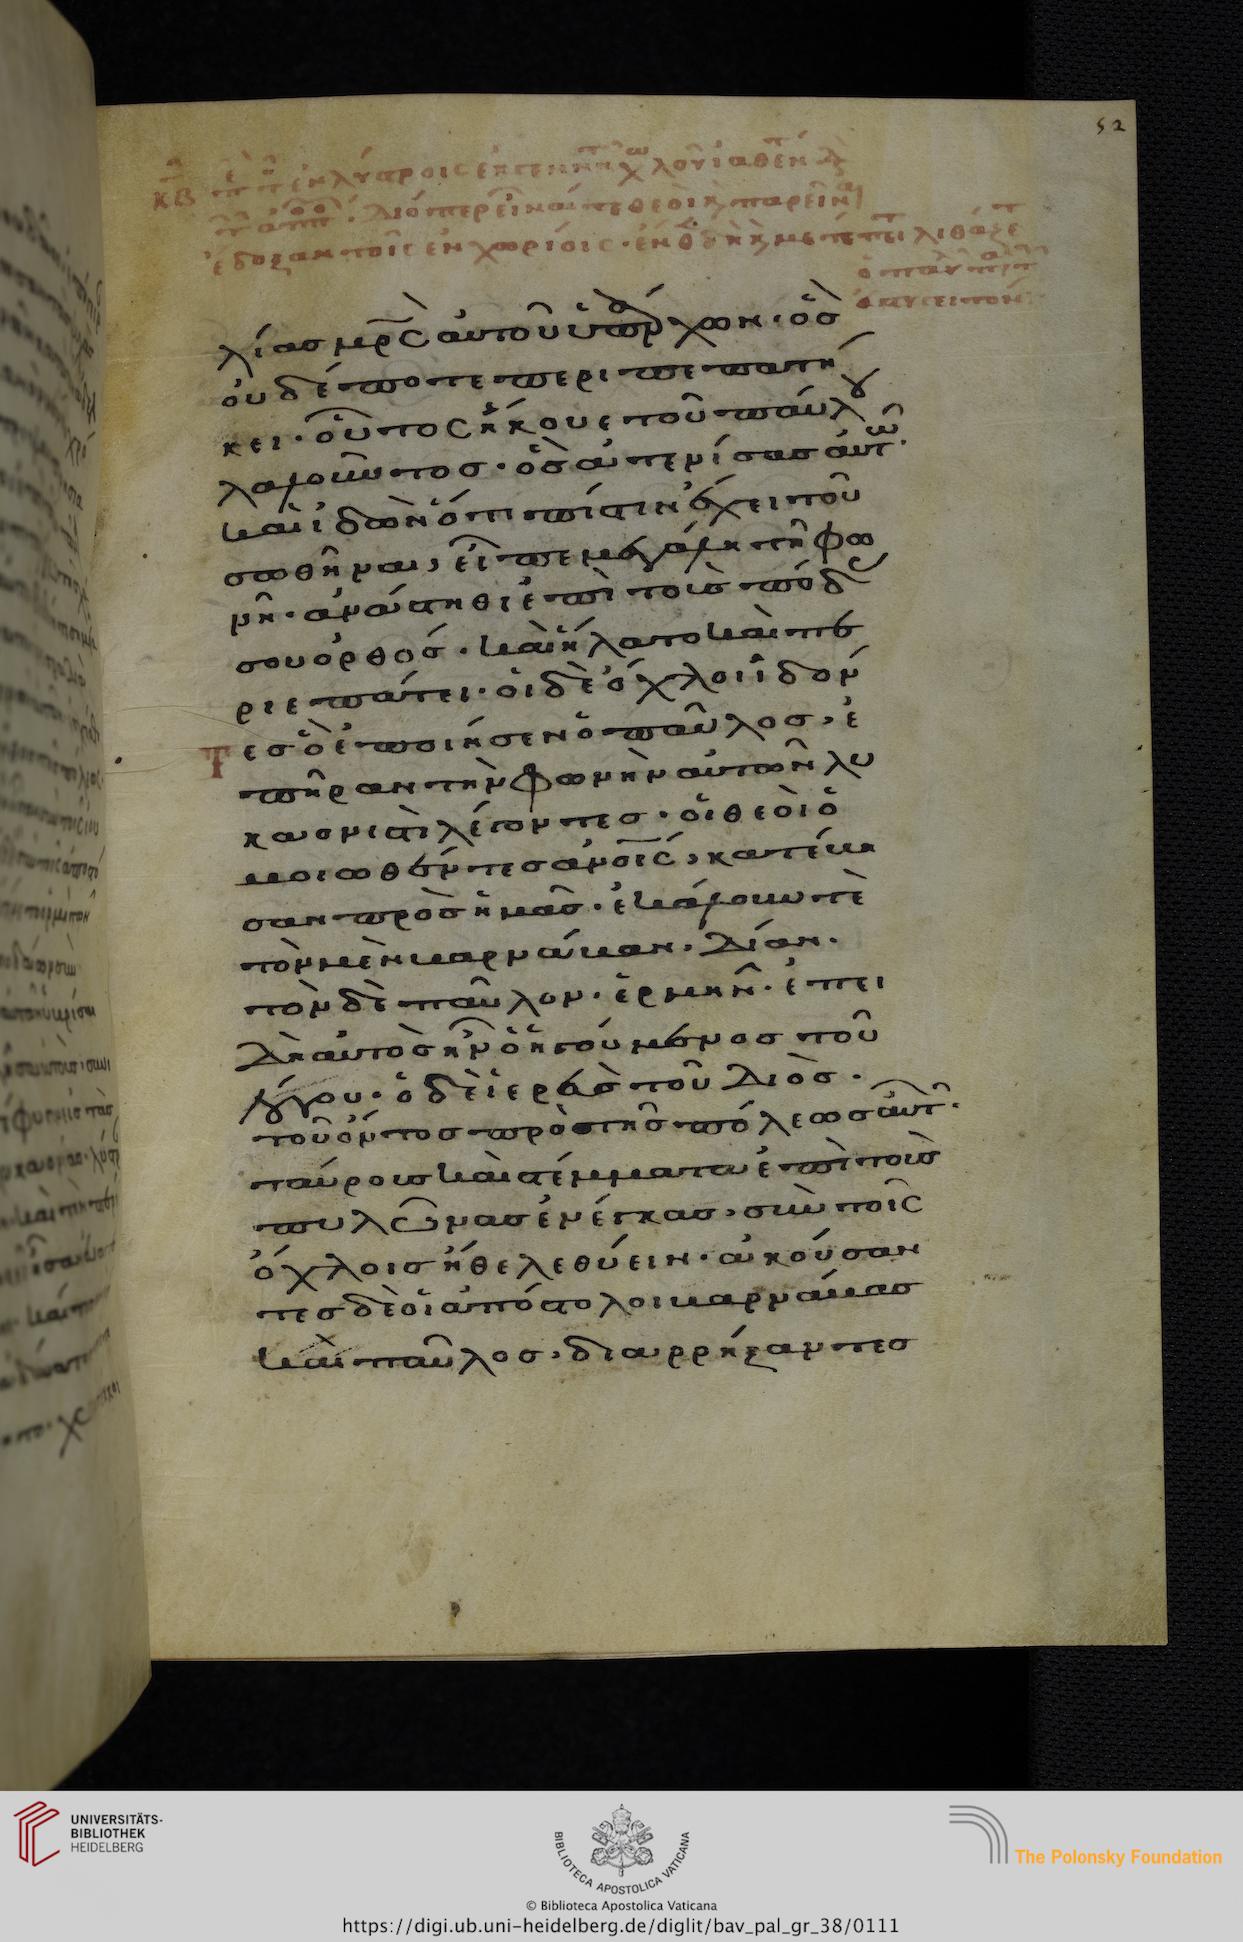 52
κβ
λίας μρς αὐτοῦ ὑπάρχων· ὃσ
οὐδέποτε περιπεπατή
κει· οὗτος ἤκουε τοῦ παύλου
λαλοῦντοσ· ὃσ ἀτενίσασ αὐτῶ·
καὶ ἰδὼν ὅτι πίστιν ἔχει τοῦ
σωθῆναι, εἶπε μεγάλη τῆ φω
νῆ· ἀνάστηθι ἐπὶ τοὺσ πόδας
σου ὀρθόσ· καὶ ἥλατο καὶ πε
ριεπάτει· οἱ δὲ ὄχλοι ἰδόν
τεσ ὃ ἐποίησεν ὁ παῦλοσ, ἐ
πῆραν τὴν φωνὴν αὐτῶν λυ
καονιστὶ λέγοντεσ· οἱ θεοὶ ὁ
μοιωθέντεσ ἀνοις, κατέβη
σαν πρὸσ ἡμᾶσ· ἐκάλουν τὲ
τὸν μὲν βαρνάβαν· δίαν·
τὸν δὲ παῦλον· ἑρμῆν· ἐπει
δὴ αὐτὸσ ἦν ὁ ἡγούμενοσ τοῦ
λόγου· ὁ δὲ ἱερεὺσ τοῦ διὸσ·
τοῦ ὄντοσ πρὸ τῆσ πόλεωσ αὐτῶν·
ταύρουσ καὶ στέμματα ἐπὶ τοὺσ
πυλῶνασ ἐνέγκασ, σὺν τοῖς
ὄχλοισ ἤθελε θύειν· ἀκούσαν
τεσ δὲ οἱ ἀπόστολοι βαρνάβασ
καὶ παῦλοσ, διαρρήξαντεσ
UNIVERSITÄTS-
BIBLIOTHEK
HEIDELBERG
BIBLIOTECA APOSTOLICA VATICANA
The Polonsky Foundation
© Biblioteca Apostolica Vaticana
https://digi.ub.uni-heidelberg.de/diglit/bav_pal_gr_38/0111